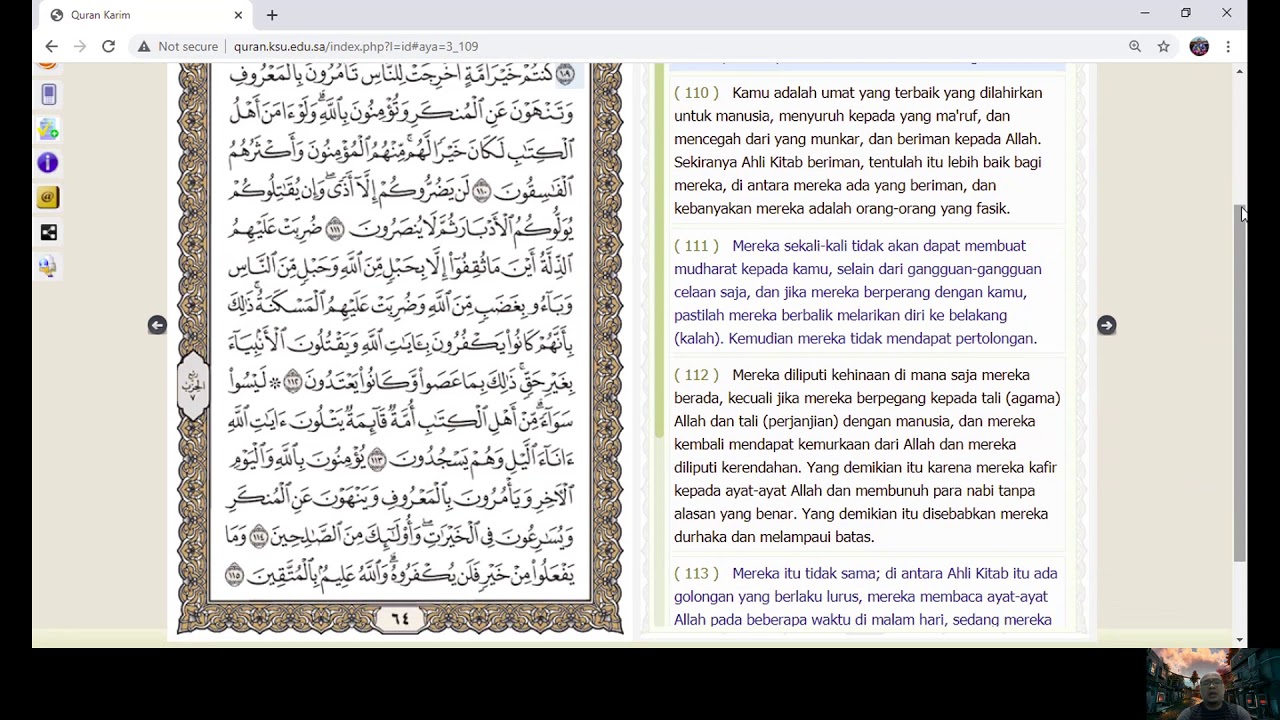 Quran Karim
Not secure
quran.ksu.edu.sa/index.php?l=id#aya=3_109
١٠٩ كُنتُمْ خَيْرَ أُمَّةٍ أُخْرِجَتْ لِلنَّاسِ تَأْمُرُونَ بِالْمَعْرُوفِ
وَتَنْهَوْنَ عَنِ الْمُنكَرِ وَتُؤْمِنُونَ بِاللَّهِ ۗ وَلَوْ ءَامَنَ أَهْلُ
الْكِتَٰبِ لَكَانَ خَيْرًا لَّهُم ۚ مِّنْهُمُ الْمُؤْمِنُونَ وَأَكْثَرُهُمُ
الْفَٰسِقُونَ ١١٠ لَن يَضُرُّوكُمْ إِلَّا أَذًى ۖ وَإِن يُقَٰتِلُوكُمْ
يُوَلُّوكُمُ الْأَدْبَارَ ثُمَّ لَا يُنصَرُونَ ١١١ ضُرِبَتْ عَلَيْهِمُ
الذِّلَّةُ أَيْنَ مَا ثُقِفُوٓا۟ إِلَّا بِحَبْلٍ مِّنَ اللَّهِ وَحَبْلٍ مِّنَ النَّاسِ
وَبَآءُو بِغَضَبٍ مِّنَ اللَّهِ وَضُرِبَتْ عَلَيْهِمُ الْمَسْكَنَةُ ۚ ذَٰلِكَ
بِأَنَّهُمْ كَانُوا۟ يَكْفُرُونَ بِـَٔايَٰتِ اللَّهِ وَيَقْتُلُونَ الْأَنۢبِيَآءَ
بِغَيْرِ حَقٍّ ۚ ذَٰلِكَ بِمَا عَصَوا۟ وَّكَانُوا۟ يَعْتَدُونَ ١١٢ ۞ لَيْسُوا۟
سَوَآءً ۗ مِّنْ أَهْلِ الْكِتَٰبِ أُمَّةٌ قَآئِمَةٌ يَتْلُونَ ءَايَٰتِ اللَّهِ
ءَانَآءَ الَّيْلِ وَهُمْ يَسْجُدُونَ ١١٣ يُؤْمِنُونَ بِاللَّهِ وَالْيَوْمِ
الْءَاخِرِ وَيَأْمُرُونَ بِالْمَعْرُوفِ وَيَنْهَوْنَ عَنِ الْمُنكَرِ
وَيُسَٰرِعُونَ فِى الْخَيْرَٰتِ ۖ وَأُو۟لَٰٓئِكَ مِنَ الصَّٰلِحِينَ ١١٤ وَمَا
يَفْعَلُوا۟ مِنْ خَيْرٍ فَلَن يُكْفَرُوهُ ۗ وَاللَّهُ عَلِيمٌۢ بِالْمُتَّقِينَ ١١٥
ربع
الحزب
٧
٦٤
( 110 ) Kamu adalah umat yang terbaik yang dilahirkan
untuk manusia, menyuruh kepada yang ma'ruf, dan
mencegah dari yang munkar, dan beriman kepada Allah.
Sekiranya Ahli Kitab beriman, tentulah itu lebih baik bagi
mereka, di antara mereka ada yang beriman, dan
kebanyakan mereka adalah orang-orang yang fasik.
( 111 ) Mereka sekali-kali tidak akan dapat membuat
mudharat kepada kamu, selain dari gangguan-gangguan
celaan saja, dan jika mereka berperang dengan kamu,
pastilah mereka berbalik melarikan diri ke belakang
(kalah). Kemudian mereka tidak mendapat pertolongan.
( 112 ) Mereka diliputi kehinaan di mana saja mereka
berada, kecuali jika mereka berpegang kepada tali (agama)
Allah dan tali (perjanjian) dengan manusia, dan mereka
kembali mendapat kemurkaan dari Allah dan mereka
diliputi kerendahan. Yang demikian itu karena mereka kafir
kepada ayat-ayat Allah dan membunuh para nabi tanpa
alasan yang benar. Yang demikian itu disebabkan mereka
durhaka dan melampaui batas.
( 113 ) Mereka itu tidak sama; di antara Ahli Kitab itu ada
golongan yang berlaku lurus, mereka membaca ayat-ayat
Allah pada beberapa waktu di malam hari, sedang mereka